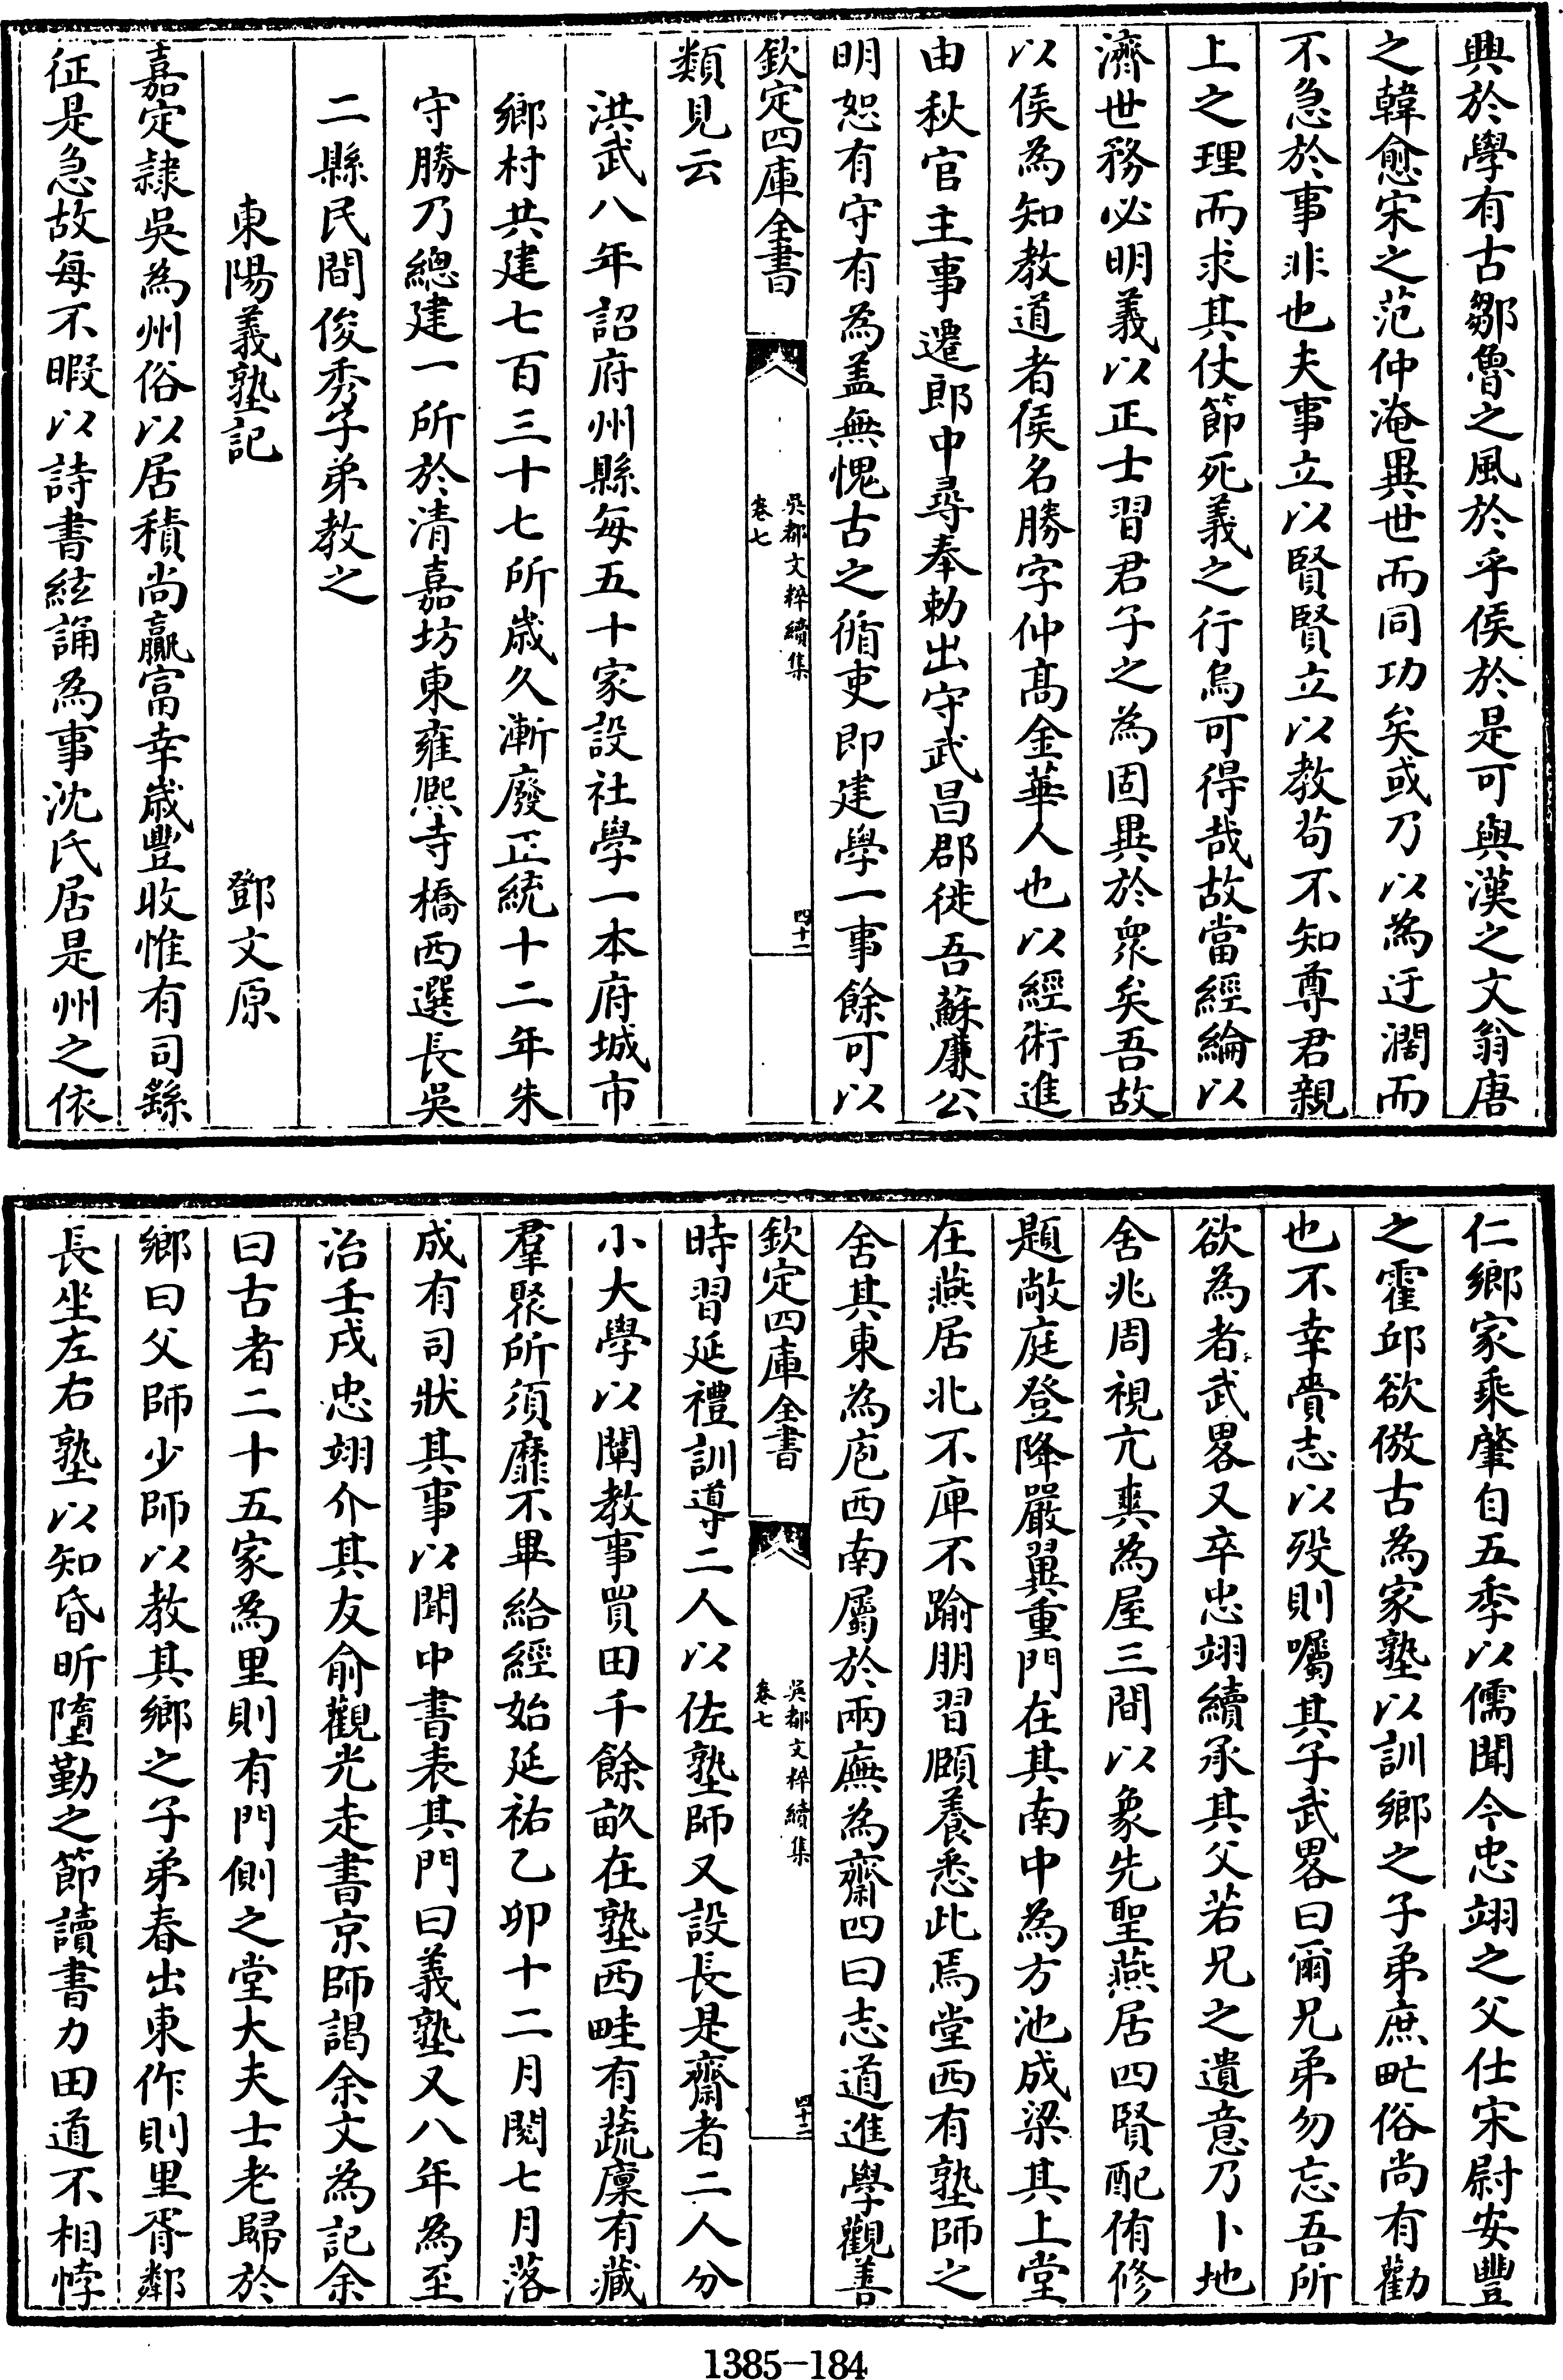 興於學有古鄒魯之風於乎侯於是可與漢之文翁唐
之韓愈宋之范仲淹異世而同功矣或乃以為迂濶而
不急於事非也夫事立以賢賢立以教苟不知尊君親
上之理而求其仗節死義之行烏可得哉故當經綸以
濟世務必明義以正士習君子之為固異於衆矣吾故
以侯為知教道者侯名勝字仲髙金華人也以經術進
由秋官主事遷郎中尋奉勅出守武昌郡徙吾蘇亷公
明恕有守有為盖無愧古之循吏即建學一事餘可以
欽定四庫全書
吳都文粹續集
卷七
四十一
類見云
洪武八年詔府州縣每五十家設社學一本府城市
鄉村共建七百三十七所歲久漸廢正統十二年朱
守勝乃總建一所於清嘉坊東雍熙寺橋西選長吳
二縣民間俊秀子弟教之
東陽義塾記
鄧文原
嘉定隷吳為州俗以居積尚贏富幸歲豐收惟有司繇
征是急故每不暇以詩書絃誦為事沈氏居是州之依
仁鄉家乘肇自五季以儒聞今忠翊之父仕宋尉安豐
之霍邱欲倣古為家塾以訓鄉之子弟庶甿俗尚有勸
也不幸賫志以歿則囑其子武畧曰爾兄弟勿忘吾所
欲為者武畧又卒忠翊續承其父若兄之遺意乃卜地
舍兆周視亢爽為屋三間以象先聖燕居四賢配侑修
題敞庭登降嚴翼重門在其南中為方池成梁其上堂
在燕居北不庳不踰朋習頤養悉此焉堂西有塾師之
舍其東為庖西南屬於兩廡為齋四曰志道進學觀善
欽定四庫全書
吳都文粹續集
卷七
四十二
時習延禮訓導二人以佐塾師又設長是齋者二人分
小大學以闡教事買田千餘畝在塾西畦有蔬廩有藏
羣聚所須靡不畢給經始延祐乙卯十二月閱七月落
成有司狀其事以聞中書表其門曰義塾又八年為至
治壬戌忠翊介其友俞觀光走書京師謁余文為記余
曰古者二十五家為里則有門側之堂大夫士老歸於
鄉曰父師少師以教其鄉之子弟春出東作則里胥鄰
長坐左右塾以知昏昕隋勤之節讀書力田道不相悖
1385-184